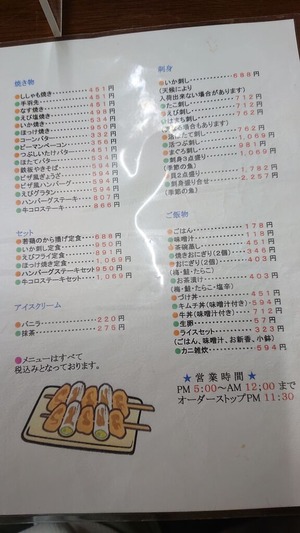 焼き物
ししゃも焼き 451円
手羽先 451円
なす焼き 451円
えび塩焼き 498円
いか焼き 534円
ほっけ焼き 950円
コーンバター 332円
ピーマンベーコン 356円
つぶしいたけバター 451円
ほたてバター 534円
鉄板やきそば 594円
ピザ風ぎょうざ 594円
ピザ風ハンバーグ 594円
えびグラタン 594円
ハンバーグステーキ 807円
牛コロステーキ 866円
セット
若鶏のから揚げ定食 688円
いか刺し定食 950円
えびフライ定食 891円
ほっけ焼き定食 1,069円
ハンバーグステーキセット 950円
牛コロステーキセット 1,069円
アイスクリーム
バニラ 220円
抹茶 275円
●メニューはすべて
税込みとなっております。
刺身
いか刺し 688円
(天候により
入荷出来ない場合があります)
たこ刺し 712円
えび刺し 712円
762円
場合もあります)
ほたて刺し 762円
活つぶ刺し 1,069円
まぐろ刺し 981円
刺身3点盛り 1,069円
(季節の魚)
貝2点盛り 1,782円
刺身盛り合せ 2,257円
(季節の魚)
ご飯物
ごはん 178円
味噌汁 118円
茶碗蒸し 451円
焼きおにぎり(2個) 344円
おにぎり(2個) 403円
(梅・鮭・たらこ)
お茶漬け 403円
(梅・鮭・たらこ・塩辛)
づけ丼 451円
キムチ丼(味噌汁付き) 594円
牛丼(味噌汁付き) 712円
生卵 57円
ライスセット 323円
(ごはん、味噌汁、お新香、小鉢)
カニ雑炊 594円
★営業時間★
PM 5:00～AM 12:00 まで
オーダーストップPM 11:30